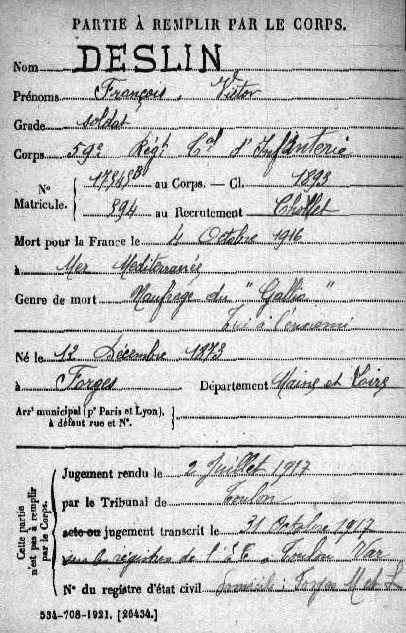 PARTIE À REMPLIR PAR LE CORPS.
Nom DESLIN
Prénoms François, Victor
Grade soldat
Corps 59e Régt Cal d'Infanterie
N° Matricule. au Corps. — Cl. 1893
894 au Recrutement Chollet
Mort pour la France le 4 Octobre 1916
à Mer Mediterranée
Genre de mort Naufrage du "Gallia"
Tué à l'ennemi
Né le 12 Décembre 1873
à Forges Département Maine et Loire
Arrt municipal (pr Paris et Lyon), à défaut rue et N°.
Cette partie n'est pas à remplir par le Corps.
Jugement rendu le 2 Juillet 1917
par le Tribunal de Toulon
acte ou jugement transcrit le 31 Octobre 1917
sur les registres de l'E C à Toulon Var
N° du registre d'état civil domicile : Forges M et L
534-708-1921. [26434.]